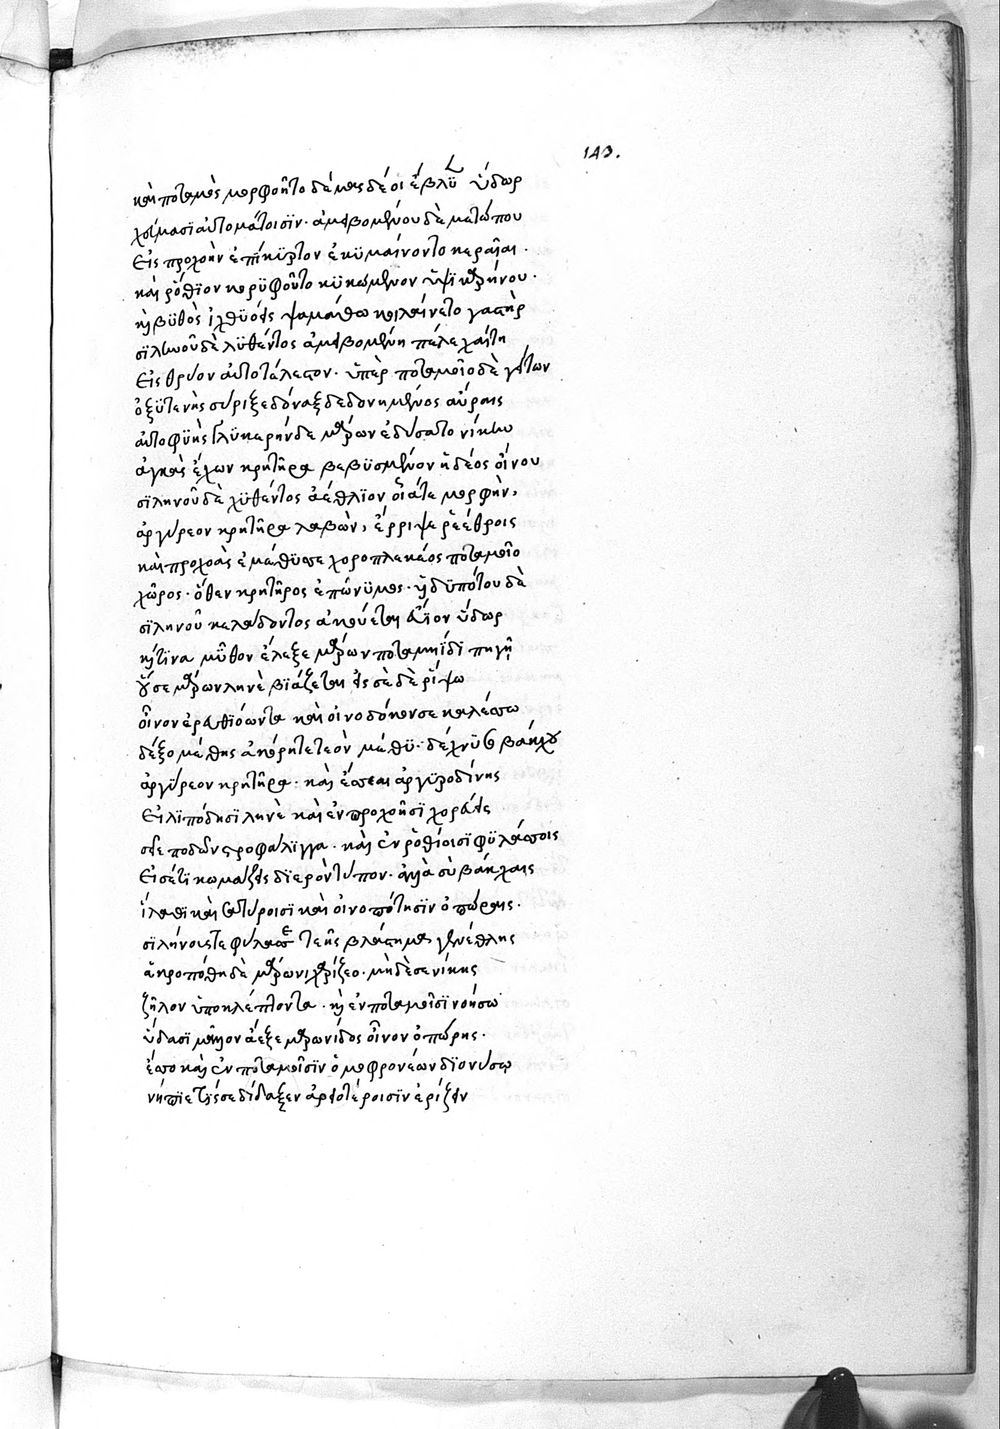 143.
καὶ ποταμὸς μορφοῦτο δέμας δέ οἱ ἔβλυε ὕδωρ
χεύμασϊ αὐτομάτοισϊν· ἀμειβομένου δὲ μετώπου
εἰς προχοὴν ἐπίκϋρτον ἐκϋμαίνοντο κεραῖαι·
καὶ ῥόθϊον κορϋφοῦτο κϋκώμενον ὕψϊ καρήνου·
κὴ βϋθὸς ἰχθϋόεις ψαμάθω κοιλαίνετο γαστὴρ
σϊληνοῦ δὲ λϋθέντος ἀμειβομένη πέλε χαίτη
εἰς θρύον αὐτοτέλεστον· ὑπὲρ ποταμοῖο δὲ γείτων
ὀξϋτενὴς σύριξε δόναξ δεδονημένος αὔραις
αὐτοφϋὴς γλϋκερήν δε μάρων ἐδύσατο νίκην
ἀγκὰς ἔχων κρητῆρα βεβϋσμένον ἡδέος οἴνου
σϊληνοῦ δὲ χϋθέντος ἀέθλϊον οἷά τε μορφὴν,
ἀργύρεον κρητῆρα λαβὼν, ἔρριψε ῥεέθροις
καὶ προχοὰς ἐμέθϋσσε χοροπλεκέος ποταμοῖο
χῶρος· ὅθεν κρητῆρος ἐπώνϋμος· ἡδϋπότου δὲ
σϊληνοῦ κελάδοντος ἀκούεται εἰσέτϊον ὕδωρ
κή τϊνα μῦθον ἔλεξε μάρων ποταμηΐδϊ πηγῇ
οὔ σε μάρων ληνὲ βϊάζεται εἰς σὲ δὲ ῥίψω
οἶνον ἐρευθϊόωντα καὶ οἰνοδόκον σε καλέσσω
δέξο μέθης ἀκόρητε τεὸν μέθϋ· δέχνϋσο βάκχου
ἀργϋρεον κρητῆρα· καὶ ἔσσεαι ἀργϋροδίνης
εἰλϊπόδη σϊληνὲ καὶ ἐν προχοῇσϊ χορεύεις
σεῖο ποδῶν στροφάλϊγγα· καὶ ἐν ῥοθίοισϊ φϋλάσσοις
εἰσέτϊ κωμάζεις δϊερὸν τύπον· ἀλλὰ σὺ βάκχαις
ἵλαθϊ καὶ σατύροισϊ καὶ οἰνοπότησϊν ὀπώραις·
σϊλήνους τε φύλασσε τεῆς βλάστημα γενέθλης
ἀκροπόθη δὲ μάρωνϊ χαρίζεο· μὴ δέ σε νίκης
ζῆλον ὑποκλέπτοντα· κὴ ἐν ποταμοῖσϊ νοήσω
ὕδασϊ μᾶλλον ἄεξε μαρωνίδος οἶνον ὀπώρης·
ἔσσο καὶ ἐν ποταμοῖσϊν ὁμοφρονέων δϊονύσω
νήπϊε τίς σε δίδαξεν ἀρειοτέροισϊν ἐρίζειν